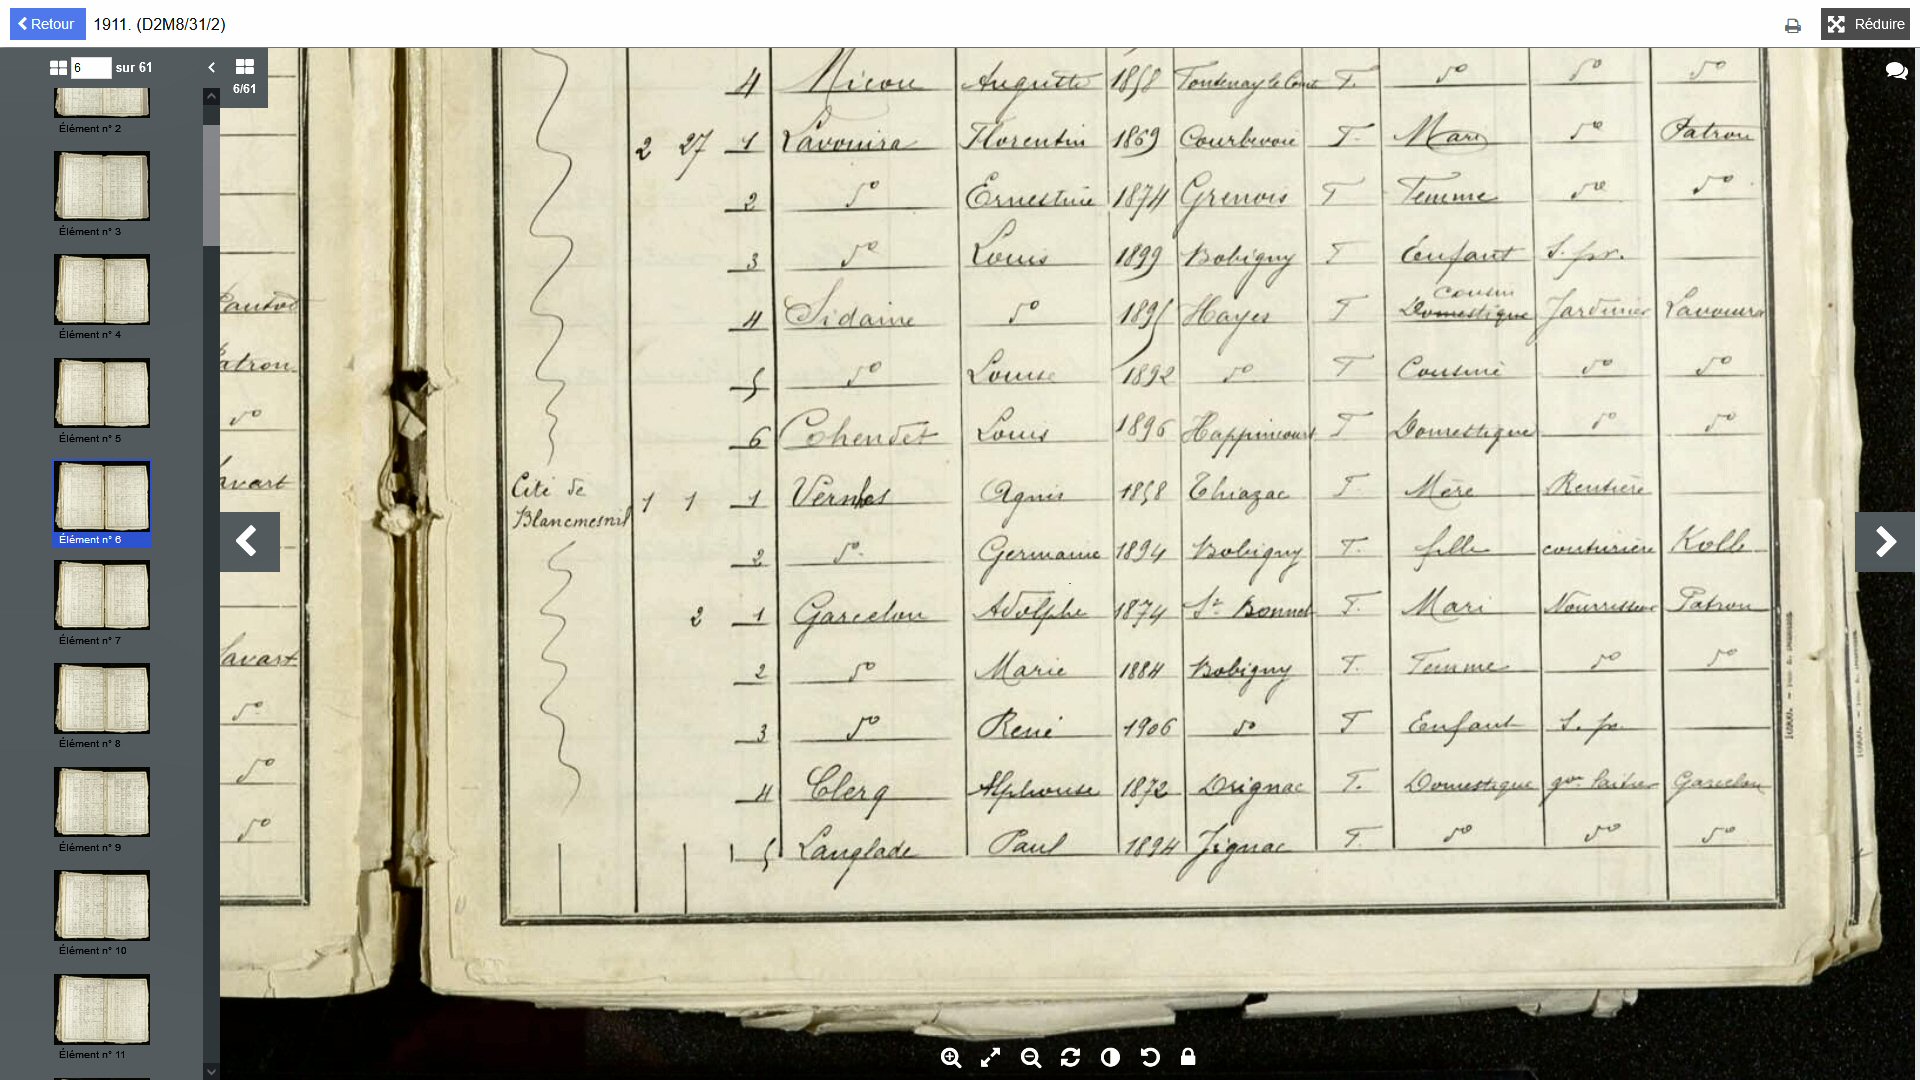 Retour 1911. (D2M8/31/2) Réduire
6 sur 61
6/61
Élément n° 2
Élément n° 3
Élément n° 4
Élément n° 5
Élément n° 6
Élément n° 7
Élément n° 8
Élément n° 9
Élément n° 10
Élément n° 11
avart
atron
do
avart
Savart
do
do
do
4 Micou Auguste 1858 Fontenay le Comte F. do do do
2 27 1 Lavouira Florentin 1869 Courbevoie F. Mari do Patron
2 do Ernestine 1874 Grenois F Femme do do
3 do Louis 1899 Bobigny F Enfant S. pr.
Cousin
4 Sidaine do 1895 Hayes F Domestique Jardinier Lavouira
5 do Louise 1892 do F Cousine do do
6 Cohendet Louis 1896 Happincourt F Domestique do do
Cité de
Blancmesnil
1 1 1 Vernhes Agnis 1858 Thiazac F Mère Rentière
2 do Germaine 1894 Bobigny F. fille couturière Kolb
2 1 Garcelon Adolphe 1874 St Bonnet F. Mari Nourrisseur Patron
2 do Marie 1884 Bobigny F. Femme do do
3 do René 1906 do F Enfant S. pr
4 Clerq Alphonse 1872 Drignac F. Domestique gon laitier Garcelon
5 Langlade Paul 1894 Jignac F. do do do